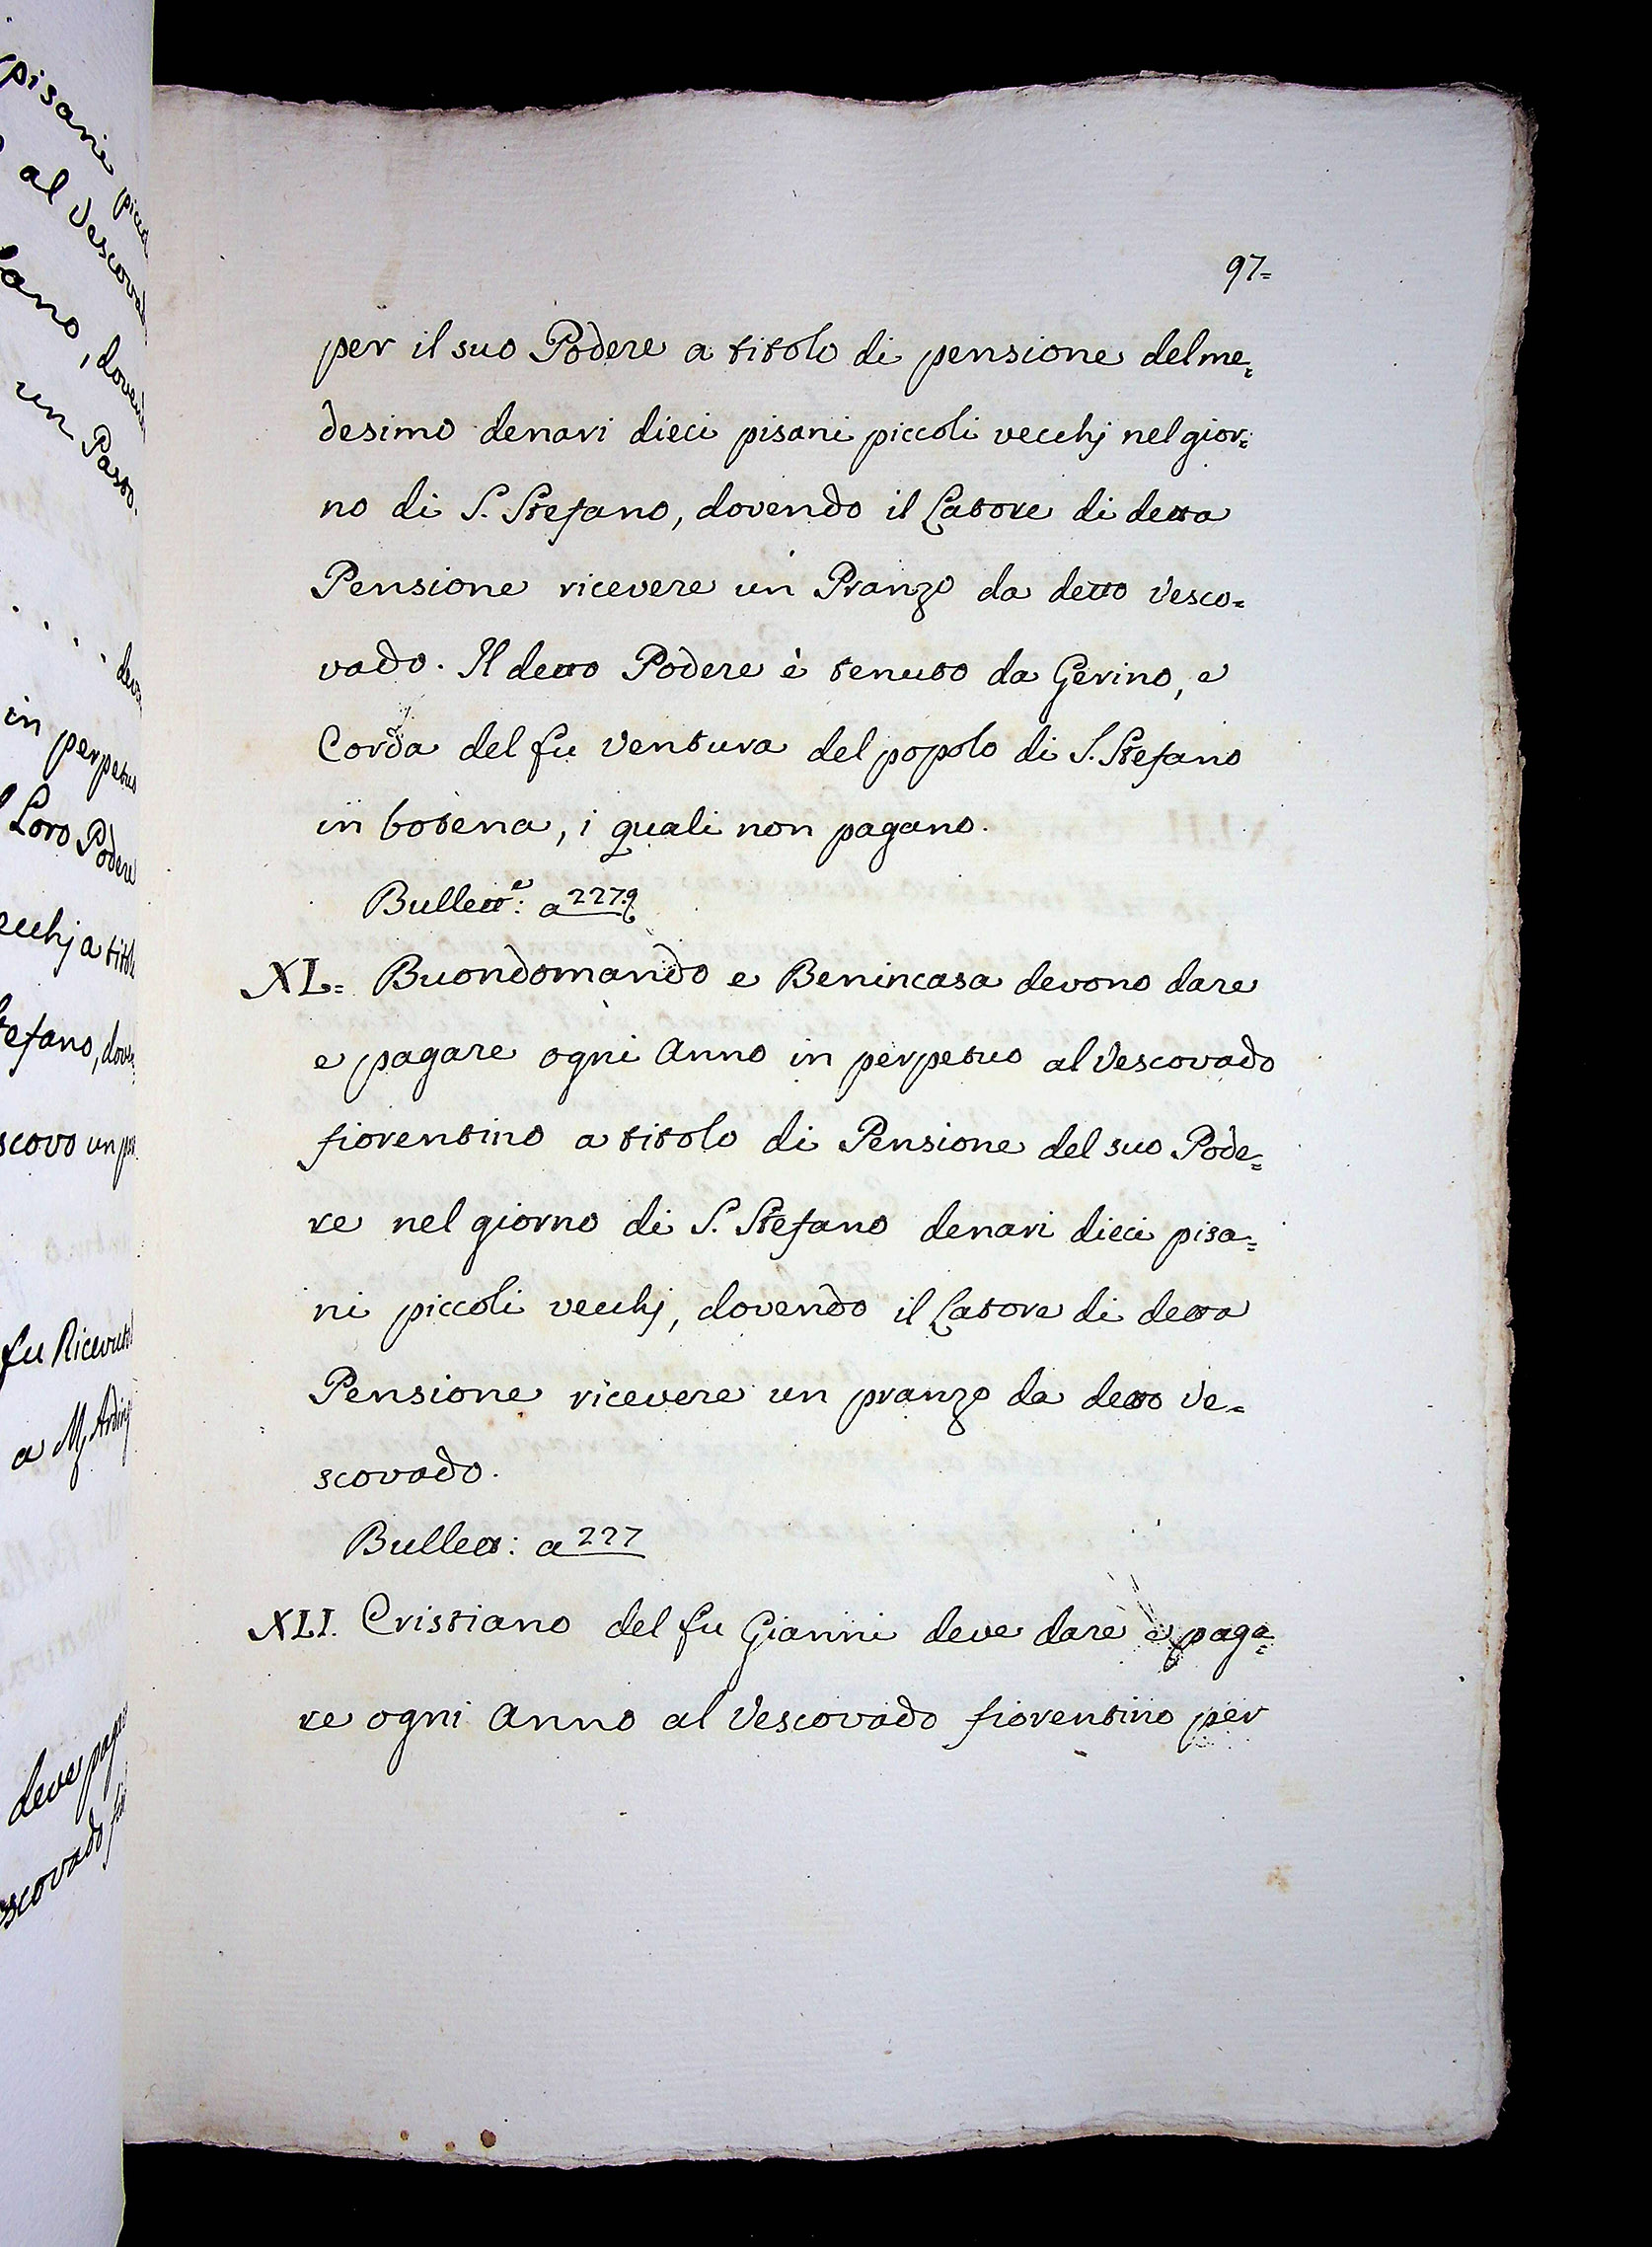 pisani picco
al Vescovado
fano, dovend
un Pasto.
. . . . deve
in perpetuo
Loro Podere
ecchj a titolo
tefano, doven
scovo un pa
fu Ricevuto
deve pagare
escovado
97=
per il suo Podere a titolo di pensione del me=
desimo denari dieci pisani piccoli vecchj nel gior=
no di S. Stefano, dovendo il Latore di detta
Pensione ricevere un Pranzo da detto Vesco=
vado. Il detto Podere è tenuto da Gerino, e
Corda del fu Ventura del popolo di S. Stefano
in botena, i quali non pagano.
Bullett.e: a 227.
XL= Buondomando e Benincasa devono dare
e pagare ogni Anno in perpetuo al Vescovado
fiorentino a titolo di Pensione del suo Pode=
re nel giorno di S. Stefano denari dieci pisa=
ni piccoli vecchj, dovendo il Latore di detta
Pensione ricevere un pranzo da detto Ve=
scovado.
Bullett: a 227
XLI. Cristiano del fu Gianni deve dare e paga=
re ogni Anno al Vescovado fiorentino per